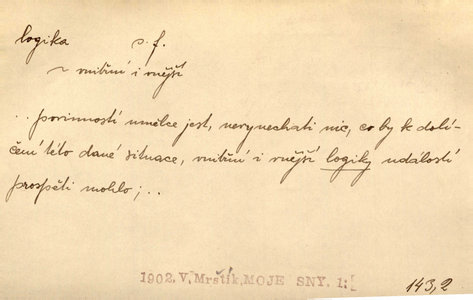 logika s. f.
~ vnitřní i vnější
.. povinností umělce jest, nevynechati nic, co by k dolí-
čení této dané situace, vnitřní i vnější logiky událostí
prospěti mohlo; ..
1902, V. Mrštík, MOJE SNY. 1:
143,2